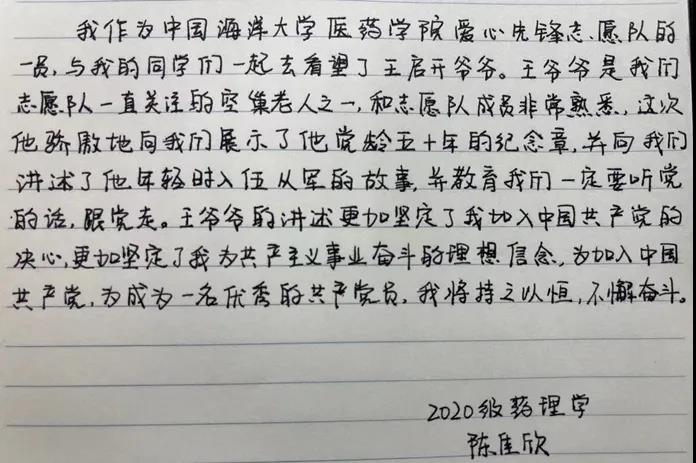 我作为中国海洋大学医药学院爱心先锋志愿队的
一员,与我的同学们一起去看望了王启开爷爷。王爷爷是我们
志愿队一直关注的空巢老人之一,和志愿队成员非常熟悉,这次
他骄傲地向我们展示了他党龄五十年的纪念章,并向我们
讲述了他年轻时入伍从军的故事,并教育我们一定要听党
的话,跟党走。王爷爷的讲述更加坚定了我加入中国共产党的
决心,更加坚定了我为共产主义事业奋斗的理想信念,为加入中国
共产党,为成为一名优秀的共产党员,我将持之以恒,不懈奋斗。
2020级药理学
陈佳欣